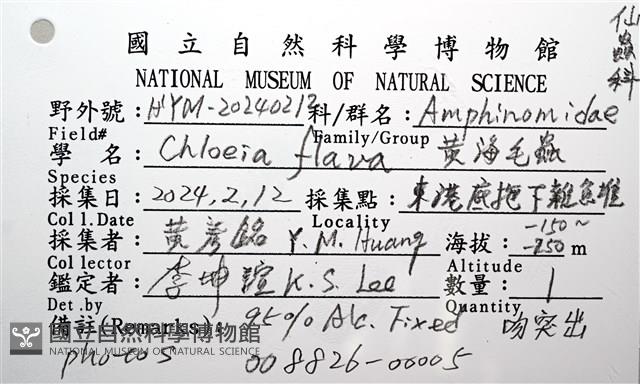 仙蟲科
國立自然科學博物館
NATIONAL MUSEUM OF NATURAL SCIENCE
野外號:HYM-20240212 科/群名:Amphinomidae
Field# Family/Group
學 名:Chloeia flava 黃海毛蟲
Species
採集日:2024,2,12 採集點:東港底拖下雜魚堆
Coll.Date Locality
採集者:黃彥銘 Y.M. Huang 海拔:-150~-250 m
Collector Altitude
鑑定者:李坤瑄 K.S. Lee 數量:1
Det.by Quantity
備註(Remarks): 95% Alc. Fixed 吻突出
國立自然科學博物館
NATIONAL MUSEUM OF NATURAL SCIENCE
photos 008826-00005